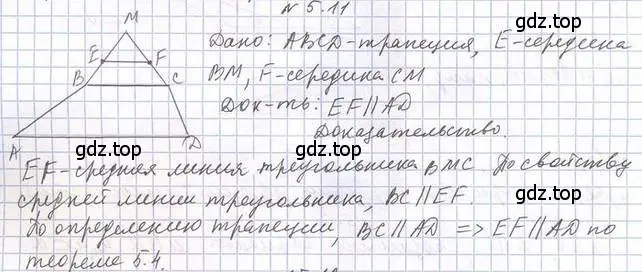 N 5.11
M
Дано: ABCD-трапеция, E-середина
E F
BM, F-середина CM
B C
Док-ть: EF||AD
Доказательство.
A D
EF-средняя линия треугольника BMC. По свойству
средней линии треугольника, BC||EF.
По определению трапеции, BC||AD => EF||AD по
теореме 5.4.
gdz.top
gdz.top
gdz.top
gdz.top